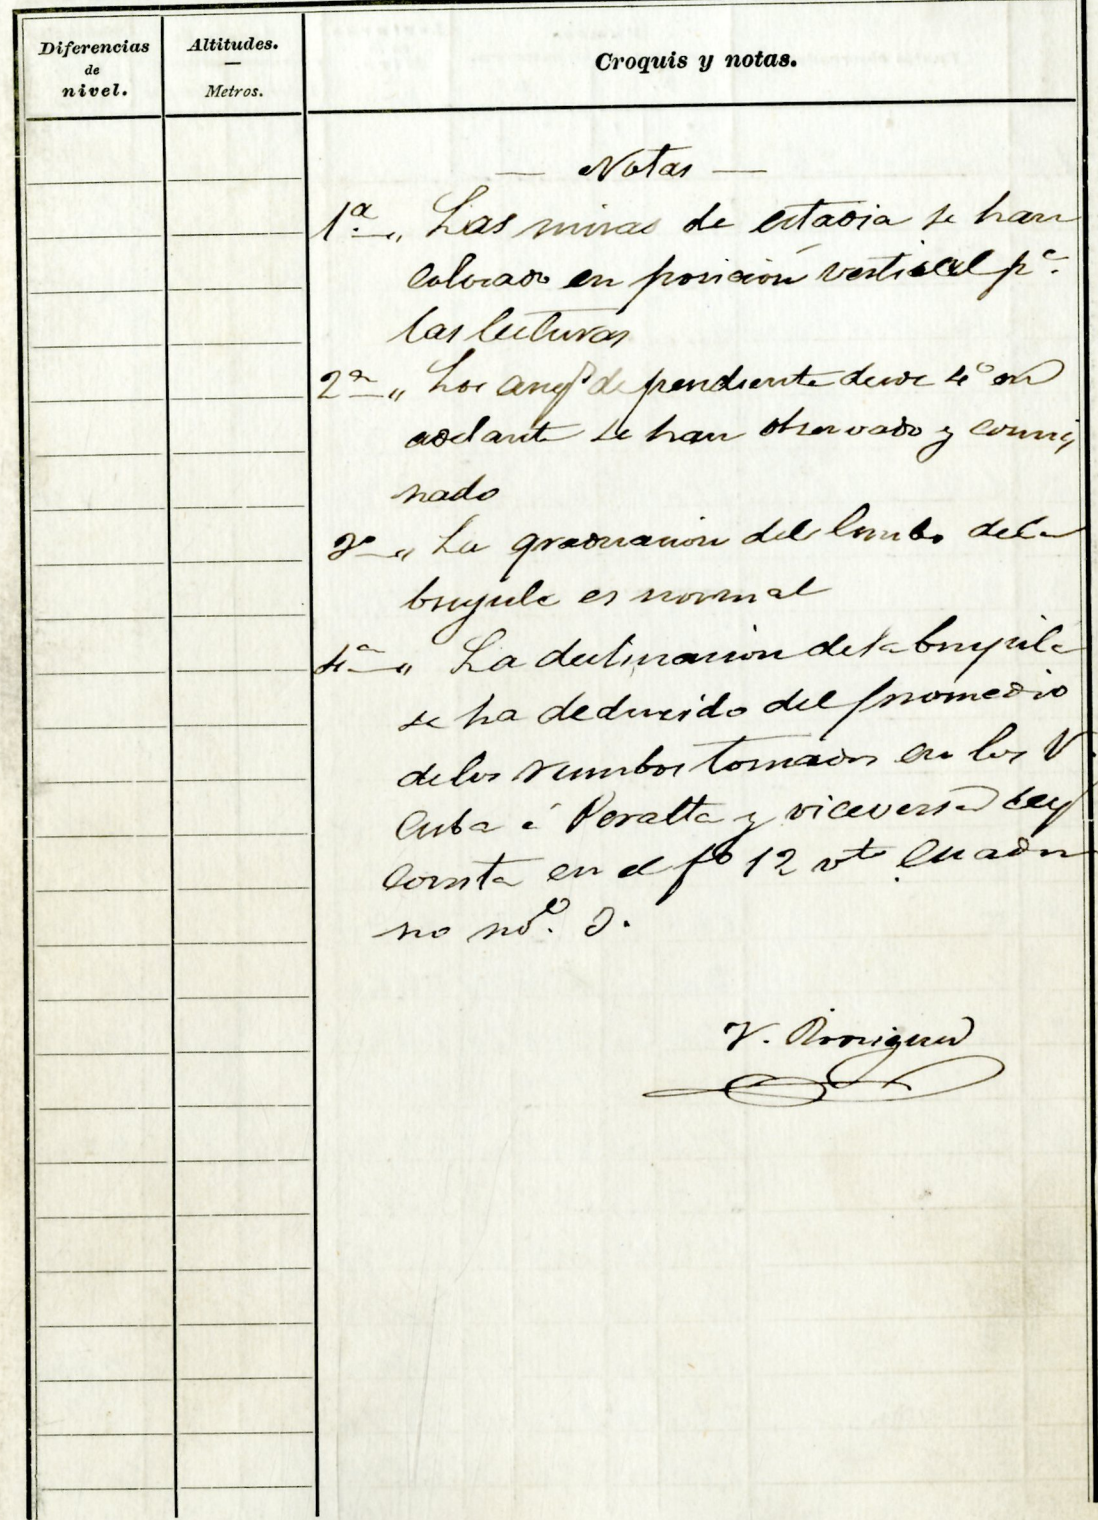 Diferencias
de
nivel.
Altitudes.
Metros.
Croquis y notas.
— Notas —
1ª „ Las miras de estadia se han
colocado en posición vertical pª.
las lecturas
2ª „ Los angs de pendiente desde 4º en
adelante se han observado y
nado
3ª „ La graduacion del limbo de la
brujula es normal
4ª „ La declinacion de la brujula
se ha deducido del promedio
de los rumbos tomados en los V.
Cuba á Peralta y viceversa
consta en el fº 12 vto Cuader
no no. 3.
V. Rodriguez